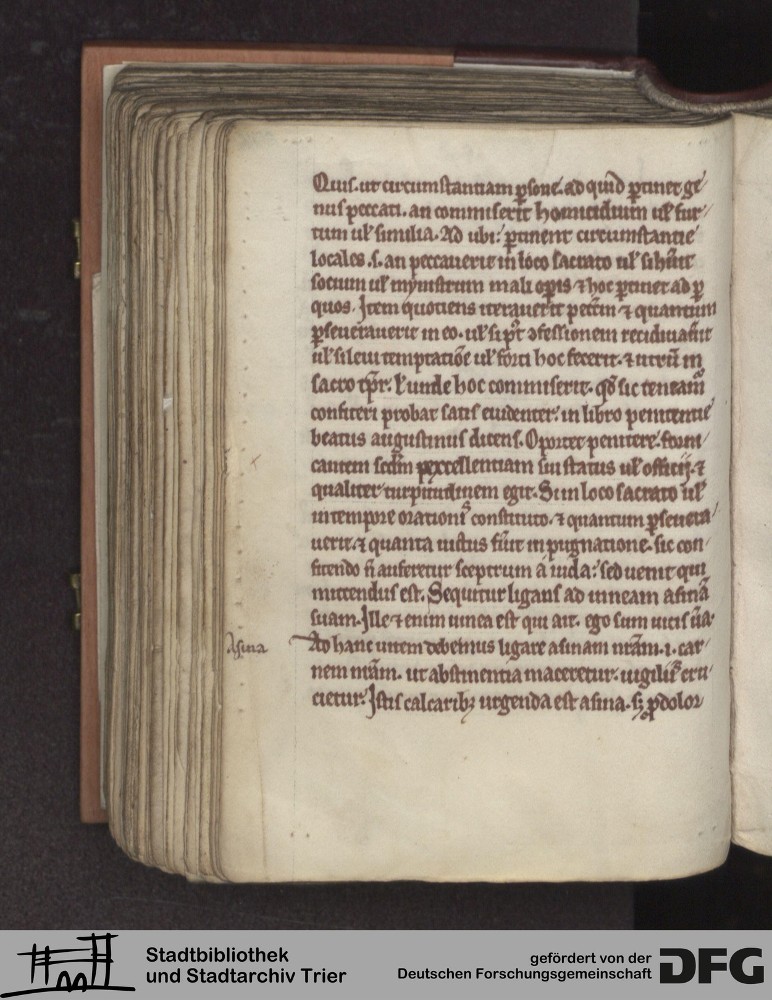 Quis. ut circumstantiam p̱sone. ad quid p̱tinet ge/
nus peccati. an commiserit homicidium ul̓ fur/
tum ul̓ similia. Ad ubi: p̱tinent circumstantie
locales .s. an peccauerit in loco sacrato ul̓ si hūit
socium ul̓ mynistrum mali op̱is ⁊ hoc p̱tinet ad p̱
quos. Item quotiens iterauerit petm̄ ⁊ quantum
p̱seuerauerit in eo. ul̓ si pꝰt ꝯfessionem recidiuauit
ul̓ si leui temptatiōe ul̓ forti hoc fecerit. ⁊ utrū in
sacro tp̄r. l̓ unde hoc commiserit. qd̓ sic teneam̄
confiteri probat satis euidenter. in libro penitentie
beatus augustinus dicens. Oportet penitere forni/
cantem scd̄m excellentiam sui status ul̓ officij. ⁊
qualiter turpitudinem egit. Si in loco sacrato ul̓
in tempore orationi constituto. ⁊ quantum p̱seuera/
uerit. ⁊ quanta uictus fūit inpugnatione. sic con/
fitendo n̄ auferetur sceptrum a iuda: sed uenit qui
mittendus est. Sequitur ligans ad uineam asinā
suam. Ille ⁊ enim uinea est qui ait. ego sum uitis ūa.
Asina
Ad hanc uitem debemus ligare asinam nr̄am. i. car/
nem nr̄am. ut abstinentia maceretur. uigiliis cru/
cietur. Istis calcaribꝫ urgenda est asina. sꝫ p̱ dolor
Stadtbibliothek
und Stadtarchiv Trier
gefördert von der
Deutschen Forschungsgemeinschaft
DFG